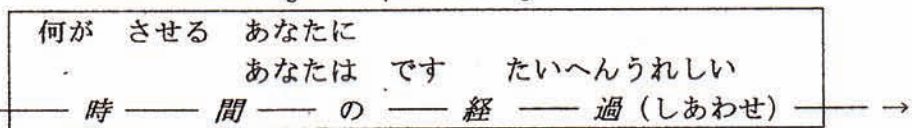 何が させる あなたに
あなたは です たいへんうれしい
時 間 の 経 過 (しあわせ)